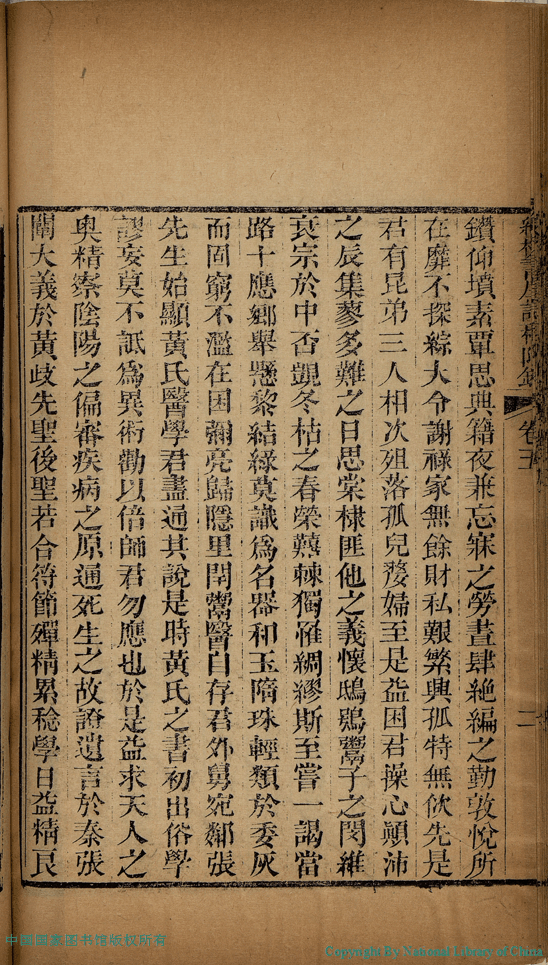 卷五
二
鑽仰墳素覃思典籍夜兼忘寐之勞晝肆絶編之勤敦悅所
在靡不探綜大令謝祿家無餘財私艱繁興孤特無依先是
君有昆弟三人相次殂落孤兒嫠婦至是益困君操心顛沛
之辰集蓼多難之日思棠棣匪他之義懷鴟鴞鬻子之閔維
衰宗於中否覬冬枯之春榮爇棘獨罹綢繆斯至嘗一謁當
路十應鄉舉懸黎結綠莫識為名器和玉隋珠輕類於委灰
而固窮不濫在困彌亮歸隱里閈鬻醫自存君外舅宛鄰張
先生始顯黃氏醫學君盡通其說是時黃氏之書初出俗學
謬妄莫不詆為異術勸以倍師君勿應也於是益求天人之
奧精察陰陽之偏審疾病之原通死生之故證遺言於秦張
闡大義於黃歧先聖後聖若合符節殫精累稔學日益精艮
中国国家图书馆版权所有
Copyright By National Library of China